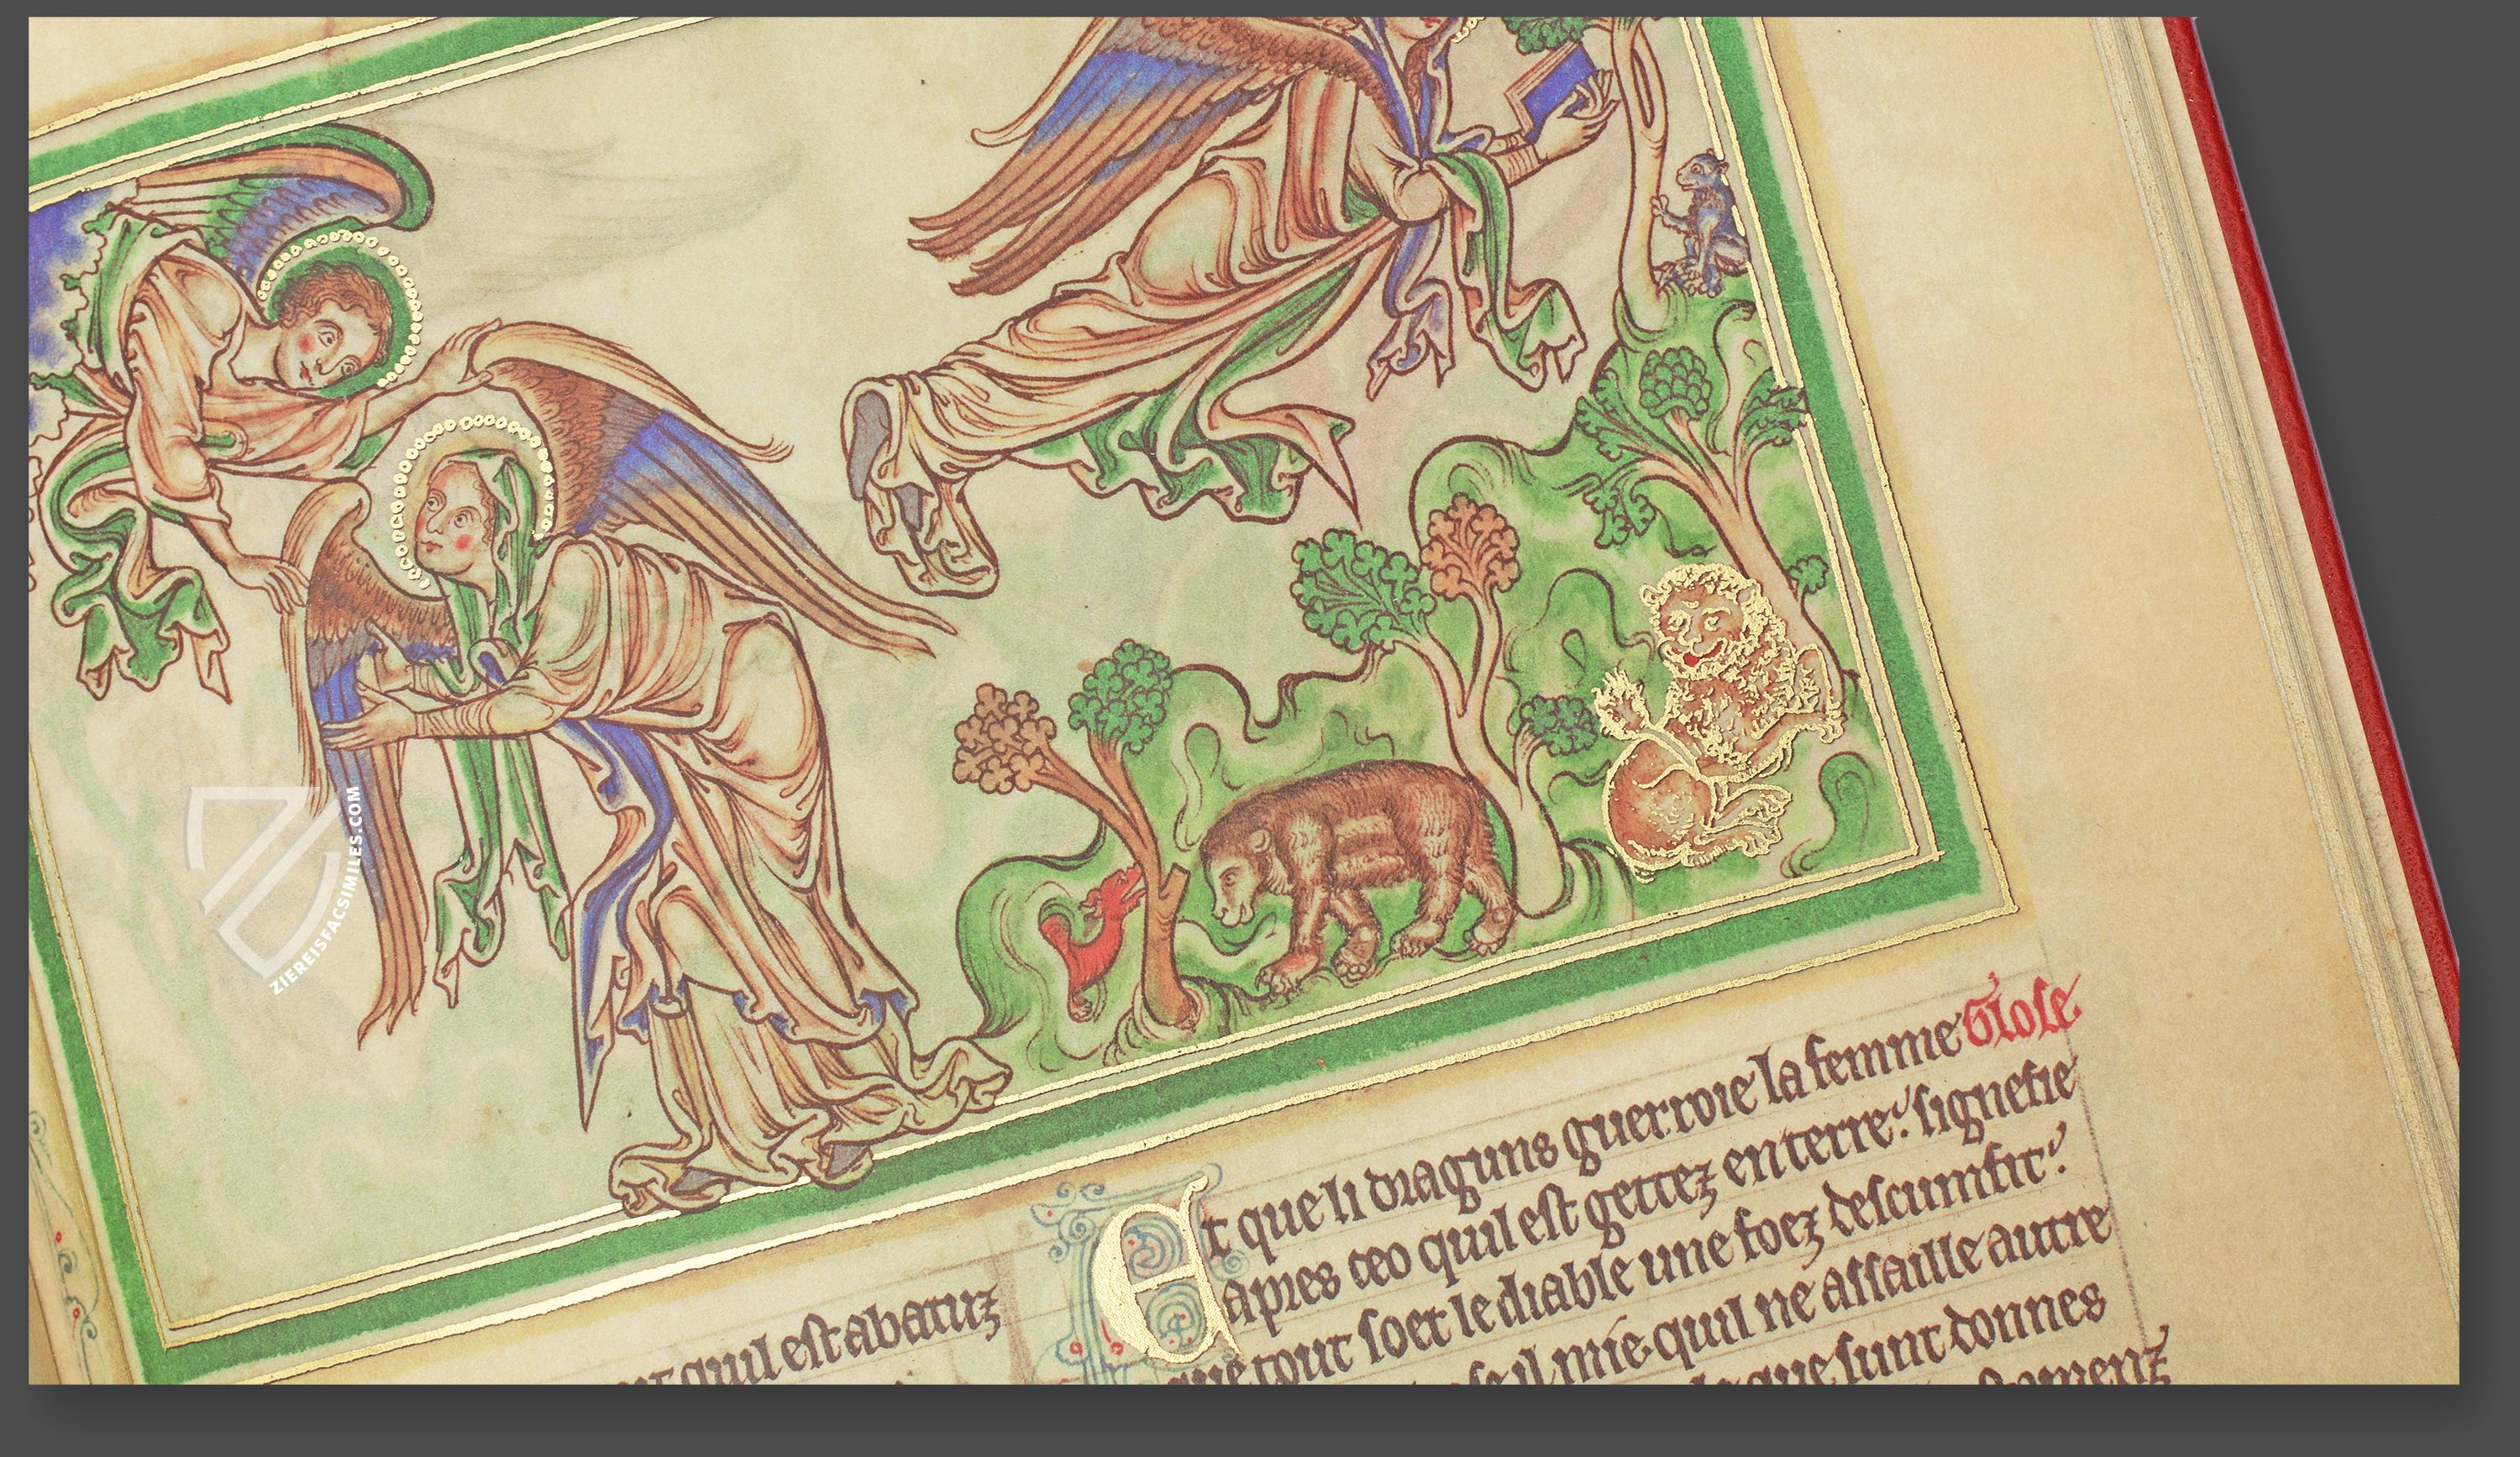 ZIEREISFACSIMILES.COM
quil est abatuz
Et que li draguns guerroie la femme Glose
apres ceo quil est gettez en terre: signefie
que tout soet le diable une foez descumfit:
il mie quil ne assaille autre
que sunt donnes